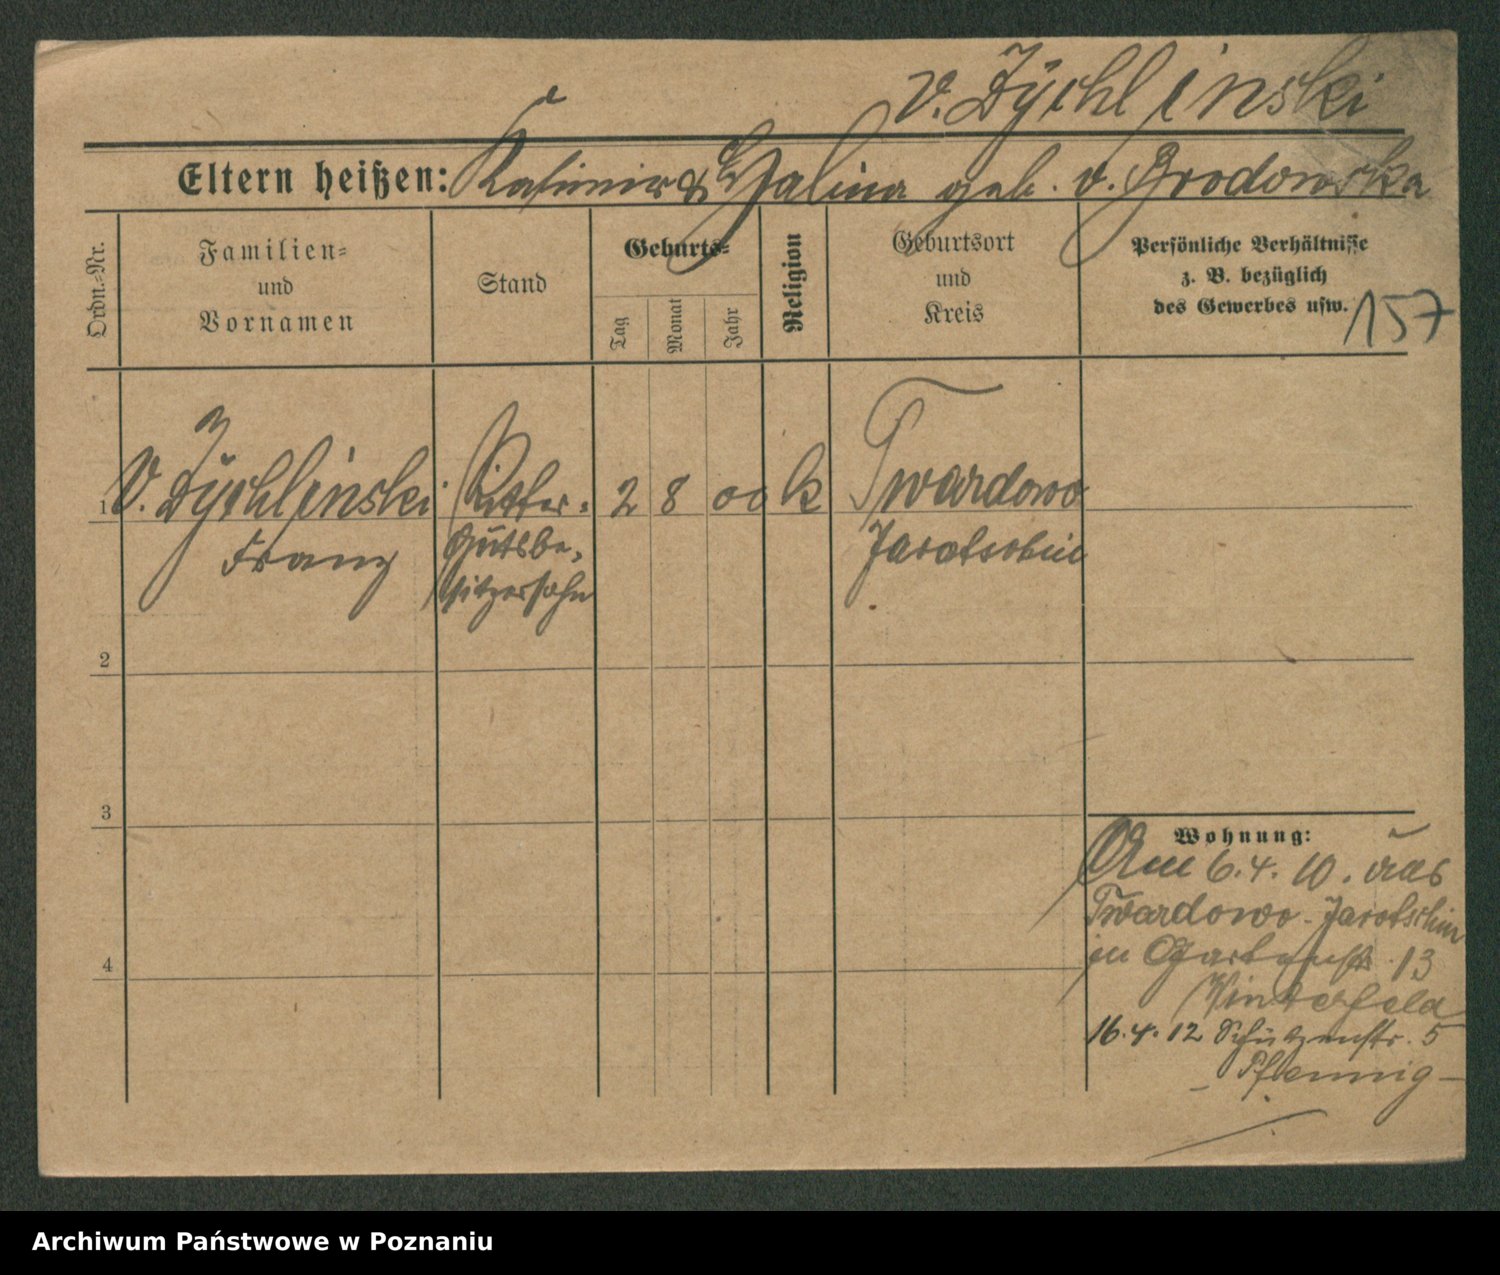 v. Żychlinski
Eltern heißen: Kasimir & Halina geb. v. Brodowska
Ordn.-Nr.
Familien-
und
Vornamen
Stand
Geburts-
Tag
Monat
Jahr
Religion
Geburtsort
und
Kreis
Persönliche Verhältnisse
z. B. bezüglich
des Gewerbes usw.
157
1 v. Żychlinski Ritter- 2 8 00 k Twardowo
Franz Gutsbe- Jarotschin
sitzersohn
2
3
Wohnung:
Am 6.4.10. aus
Twardowo-Jarotschin
in Gartenstr. 13
Winterfeld
16.4.12 Schützenstr. 5
- Pfennig -
4
Archiwum Państwowe w Poznaniu